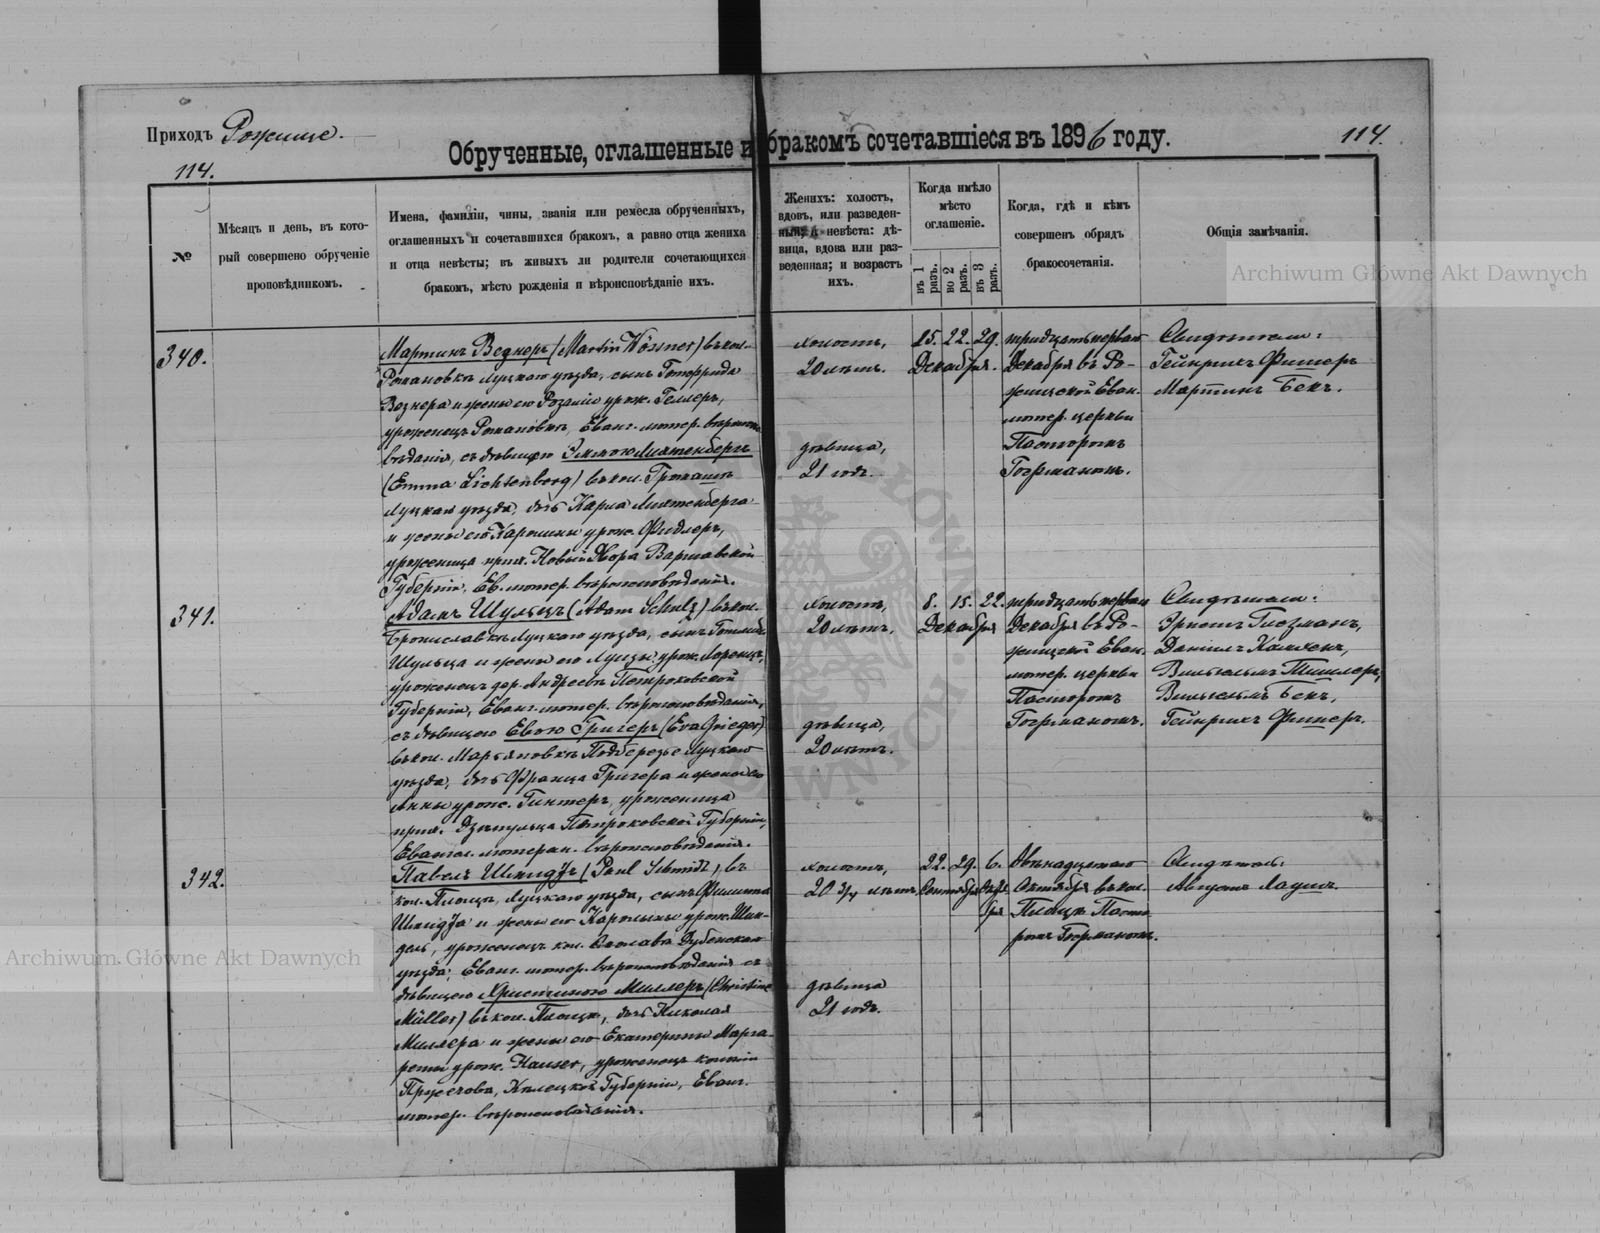 Приходъ Рожище.
114.
Обрученные, оглашенные и бракомъ сочетавшіеся въ 1896 году.
114.
№
Мѣсяцъ и день, въ кото-
рый совершено обрученіе
проповѣдникомъ.
Имена, фамиліи, чины, званія или ремесла обрученныхъ,
оглашенныхъ и сочетавшихся бракомъ, а равно отца жениха
и отца невѣсты; въ живыхъ ли родители сочетающихся
бракомъ, мѣсто рожденія и вѣроисповѣданіе ихъ.
Женихъ: холостъ,
вдовъ, или разведен-
ный; и невѣста: дѣ-
вица, вдова или раз-
веденная; и возрастъ
ихъ.
Когда имѣло
мѣсто
оглашеніе.
въ 1 разъ.
во 2 разъ.
въ 3 разъ.
Когда, гдѣ и кѣмъ
совершенъ обрядъ
бракосочетанія.
Общія замѣчанія.
340.
Мартинъ Везнеръ (Martin Wösner) въ кол.
Романовкѣ Луцкаго уѣзда, сынъ Готфрида
Везнера и жены его Розаліи урож. Геллеръ,
уроженецъ Романовки, Еванг. лютер. вѣроиспо-
вѣданія, съ дѣвицею Эммою Лихтенбергъ
(Emma Lichtenberg) въ кол.
Луцкаго уѣзда, дочь Карла Лихтенберга
и жены его Каролины урож. Фидлеръ,
уроженица прих. Новый Дворъ Варшавской
Губерніи, Ев. лютер. вѣроисповѣданія.
холостъ,
20 лѣтъ.
дѣвица,
21 годъ.
15. 22. 29.
Декабря.
тридцать перваго
Декабря въ Ро-
жищской Еван.
лютер. церкви
Пасторомъ
Гоэрманомъ.
Свидѣтели:
Гейнрихъ Фишеръ
Мартинъ Бекъ.
341.
Адамъ Шульцъ (Adam Schulz) въ кол.
Брониславкѣ Луцкаго уѣзда, сынъ Готлиба
Шульца и жены его Луизы урож. Лоренцъ,
уроженецъ дер. Андреевъ Петроковской
Губерніи, Еванг. лютер. вѣроисповѣданія,
съ дѣвицею Евою Григеръ (Eva Grieger)
въ кол. Марьяновкѣ Подберезье Луцкаго
уѣзда, дочь Франца Григера и жены его
Анны урож. Гинтеръ, уроженица
прих. Петроковской Губерніи,
Евангел. лютеран. вѣроисповѣданія.
холостъ,
20 лѣтъ.
дѣвица,
20 лѣтъ.
8. 15. 22.
Декабря
тридцать перваго
Декабря въ Ро-
жищской Еван.
лютер. церкви
Пасторомъ
Гоэрманомъ.
Свидѣтели:
Эрнстъ Глезманъ,
Даніилъ
Вильгельмъ Тишлеръ,
Вильгельмъ Бекъ,
Гейнрихъ Фишеръ.
342.
Павелъ Шмидтъ (Paul Schmidt) въ
кол. Площъ, Луцкаго уѣзда, сынъ Филиппа
Шмидта и жены его Каролины урож. Шин-
дель, уроженецъ кол. Дубенскаго
уѣзда, Еванг. лютер. вѣроисповѣданія съ
дѣвицею Христиною Миллеръ (Christine
Müller) въ кол. Площъ, дочь Николая
Миллера и жены его Екатерины Марга-
реты урож. Hauser, уроженецъ колоніи
Кѣлецкой Губерніи, Еванг.
лютер. вѣроисповѣданія.
холостъ,
20 3/4 лѣтъ.
дѣвица
21 годъ.
22. 29. 6.
Сентября Октя
бря
двѣнадцатаго
Октября въ кол.
Площъ Пасто-
ромъ Гоэрманомъ.
Свидѣтель:
Августъ
Archiwum Główne Akt Dawnych
Archiwum Główne Akt Dawnych